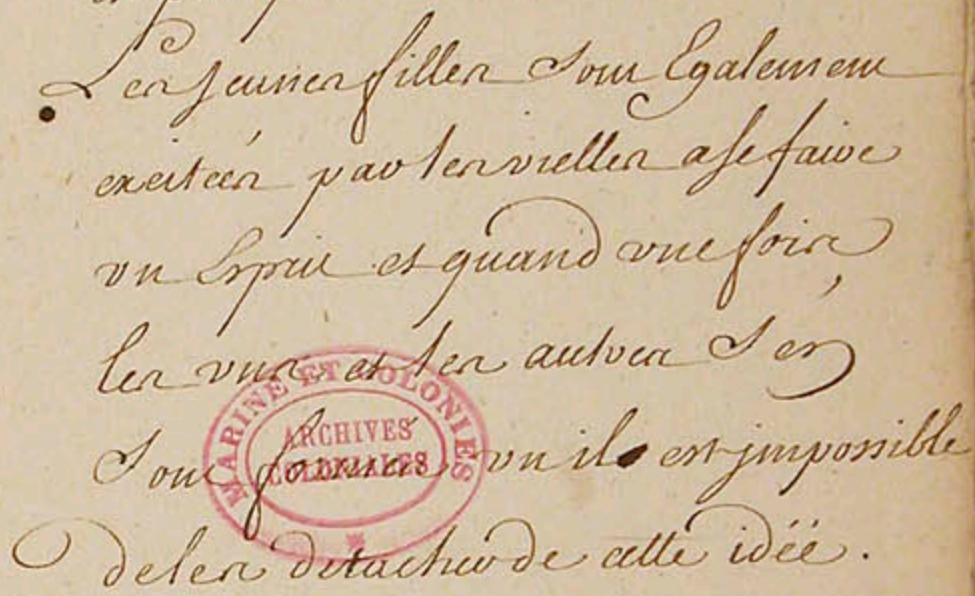 Les jeunes filles sont Egalement
excitées par les vielles a se faire
un Esprit et quand une fois
les uns et les autres s'en
sont formés un il est jmpossible
de les detacher de cette idée.
MARINE ET COLONIES
ARCHIVES
COLONIALES